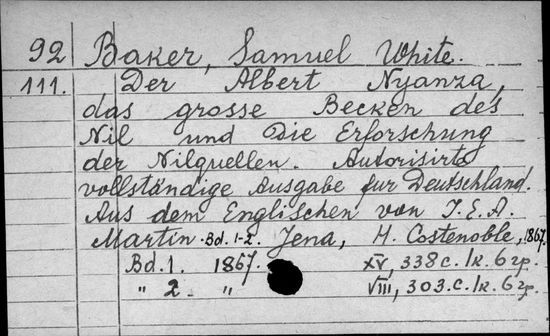 92 Baker, Samuel White.
111. Der Albert Nyanza,
das grosse Becken des
Nil und Die Erforschung
der Nilquellen. Autorisirte
vollständige Ausgabe fur Deutschland.
Aus dem Englischen von J. E. A.
Martin. Bd. 1-2. Jena, H. Costenoble, 1867.
Bd. 1. 1867. XV, 338 c. 1 к. 6 гр.
" 2. " VIII, 303. c. 1 к. 6 гр.